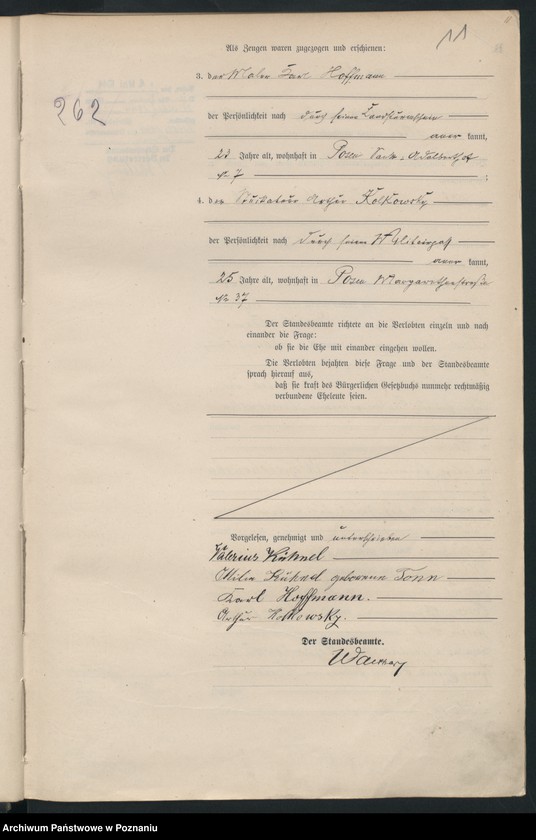 11
262
Als Zeugen waren zugezogen und erschienen:
3. der Maler Karl Hoffmann
der Persönlichkeit nach durch seinen Landsturmschein
aner kannt,
Jahre alt, wohnhaft in Posen Sankt-Adalbertstr.
No 7
4. der Arthur Kolkowsky
der Persönlichkeit nach durch seinen Militärpaß
aner kannt,
25 Jahre alt, wohnhaft in Posen Margarethenstraße
No 37
Der Standesbeamte richtete an die Verlobten einzeln und nach
einander die Frage:
ob sie die Ehe mit einander eingehen wollen.
Die Verlobten bejahten diese Frage und der Standesbeamte
sprach hierauf aus,
daß sie kraft des Bürgerlichen Gesetzbuchs nunmehr rechtmäßig
verbundene Eheleute seien.
Vorgelesen, genehmigt und unterschrieben
Valerius Kühnel
Kühnel geborene Tonn
Karl Hoffmann.
Arthur Kolkowsky.
Der Standesbeamte.
Archiwum Państwowe w Poznaniu